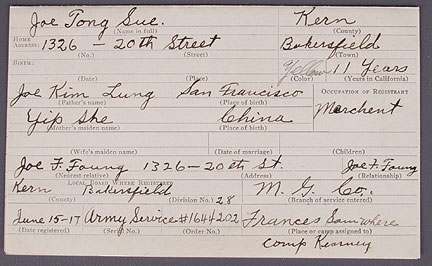 Joe Tong Sue. Kern
(Name in full) (County)
HOME ADDRESS: 1326 - 20th Street Bakersfield
(No.) (Street) (Town)
BIRTH: Yellow 11 Years
(Date) (Place) (Color) (Years in California)
Joe Kim Lung San Francisco OCCUPATION OF REGISTRANT
(Father's name) (Place of birth) Merchent
Yip She China
(Mother's maiden name) (Place of birth)
(Wife's maiden name) (Date of marriage) (Children)
Joe F. Foung 1326-20th St. Joe F. Foung
(Nearest relative) (Address) (Relationship)
Kern LOCAL BOARD WHERE REGISTERED Bakersfield M. G. Co.
(County) (Division No.) 28 (Branch of service entered)
June 15-17 Army Service #1644202 Frances Somewhere
(Date registered) (Serial No.) (Order No.) (Place or camp assigned to)
comp Kearney